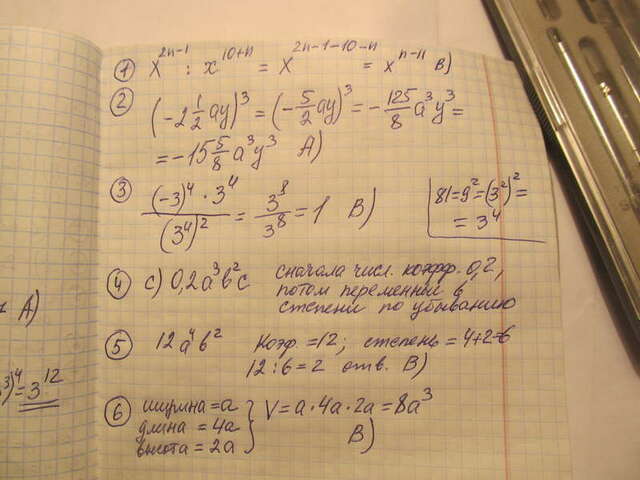 ① x^{2n-1} : x^{10+n} = x^{2n-1-10-n} = x^{n-11} В)
② (-2 1/2 ay)^3 = (-5/2 ay)^3 = -125/8 a^3y^3 =
= -15 5/8 a^3y^3 А)
③ (-3)^4 · 3^4 / (3^4)^2 = 3^8/3^8 = 1 В)
81=9^2=(3^2)^2=
= 3^4
④ с) 0,2a^3b^2c сначала числ. коэфф. 0,2,
потом переменные в
степени по убыванию
⑤ 12a^4b^2 коэф. =12; степень =4+2=6
12:6=2 отв. В)
⑥ ширина =a
длина = 4a
высота = 2a
V = a·4a·2a = 8a^3
В)
А)
3)^4=3^12